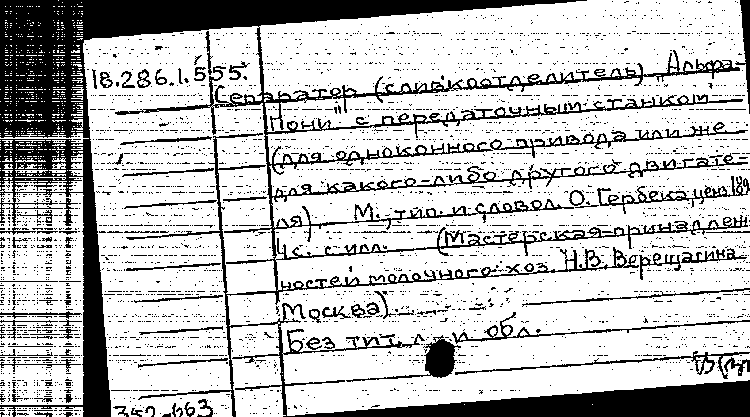 18.286.1.555.
Сепаратор (сливкоотделитель) "Альфа-
Пони" с передаточным станком
(для одноконного привода или же
для какого-либо другого двигате-
ля). М., тип. и словол. О. Гербека, ценз. 189
4 с. с илл. (Мастерская принадлеж-
ностей молочного хоз. Н.В. Верещагина.
Москва)
Без тит. л. и обл.
352-663